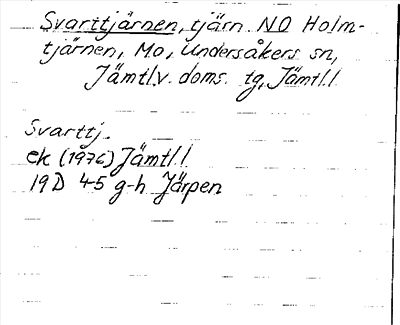 Svarttjärnen, tjärn NO Holm-
tjärnen, Mo, Undersåkers sn,
Jämtl.v. doms. tg, Jämtl.l
Svarttj.
ek (1976) Jämtl.l
19D 4-5 g-h Järpen